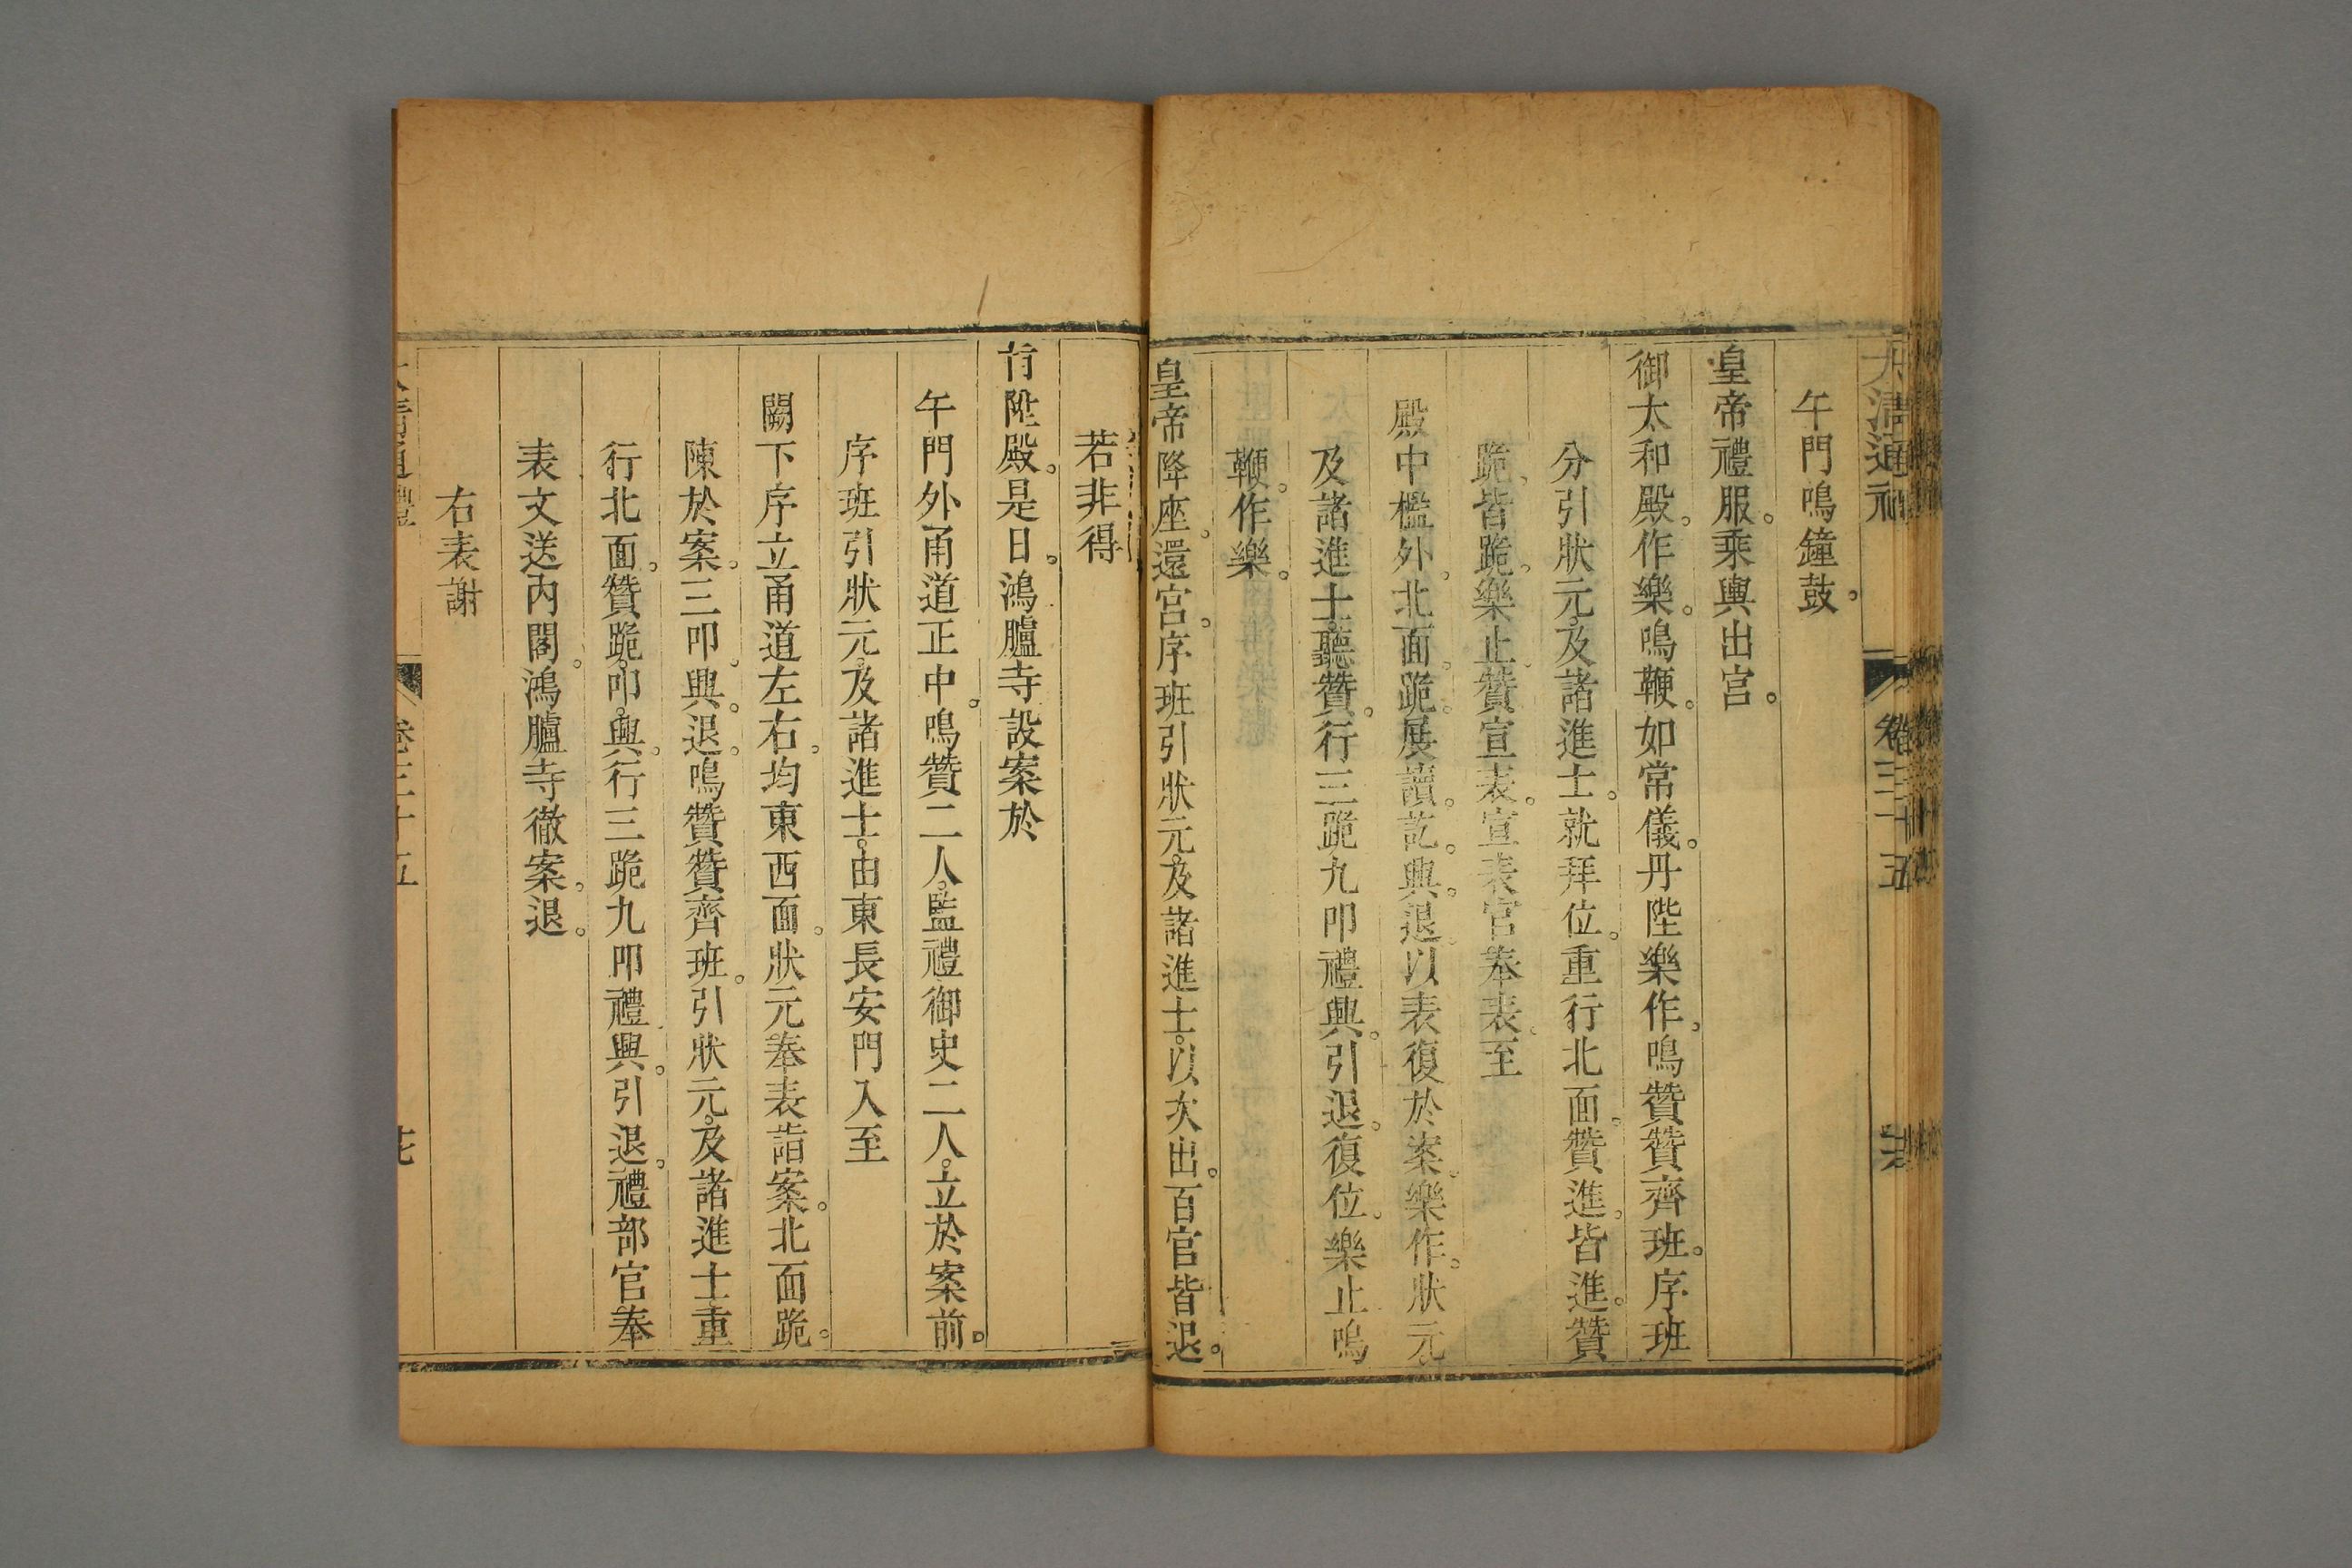 大清通禮
卷三十五
午門鳴鐘鼓。
皇帝禮服。乘輿出宫。
御太和殿。作樂。鳴鞭。如常儀。丹陛樂作。鳴贊贊齊班。序班
分引狀元。及諸進士。就拜位。重行北面。贊進。皆進。贊
跪。皆跪。樂止。贊宣表。宣表官奉表。至
殿中檻外。北面。跪。展讀。訖。興。退。以表復於案。樂作。狀元。
及諸進士。聽贊。行三跪九叩禮興。引退。復位。樂止。鳴
鞭。作樂。
皇帝降座。還宮。序班引狀元。及諸進士。以次出。百官皆退。
若非得
旨陞殿。是日。鴻臚寺設案於
午門外甬道正中。鳴贊二人。監禮御史二人。立於案前。
序班引狀元。及諸進士。由東長安門入至
闕下序立甬道左右。均東西面。狀元奉表詣案。北面跪。
陳於案。三叩。興。退。鳴贊贊齊班。引狀元。及諸進士重
行北面。贊跪。叩。興。行三跪九叩禮興。引退。禮部官奉
表文送內閣。鴻臚寺徹案。退。
右表謝